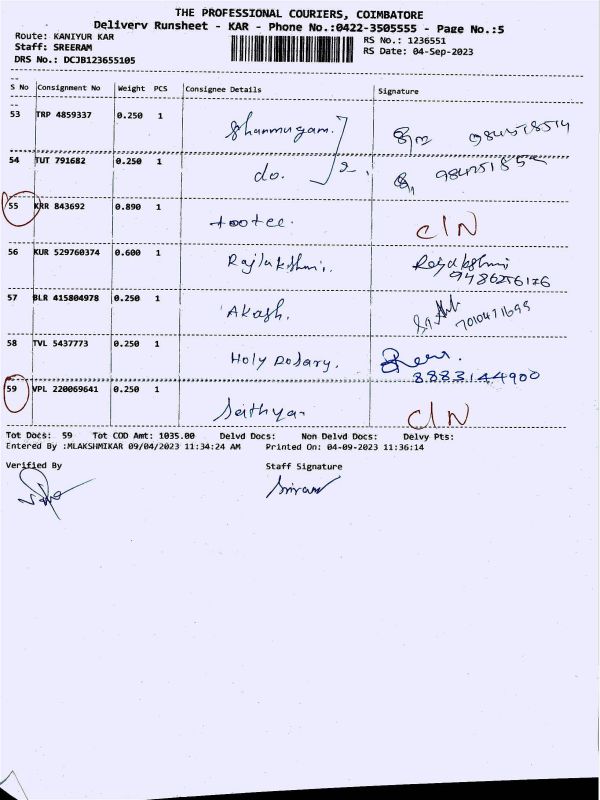 THE PROFESSIONAL COURIERS, COIMBATORE
Delivery Runsheet - KAR - Phone No.:0422-3505555 - Page No.:5
Route: KANIYUR KAR
RS No.: 1236551
Staff: SREERAM
RS Date: 04-Sep-2023
DRS No.: DCJB123655105
S No Consignment No Weight PCS Consignee Details Signature
53 TRP 4859337 0.250 1 Shanmugam.
54 TUT 791682 0.250 1 do. 2.
55 KRR 843692 0.890 1 tootee. CIN
56 KUR 529760374 0.600 1 Rajlakshmi. Rajalakshmi
9486256176
57 BLR 415804978 0.250 1 Akash. 7010471695
58 TVL 5437773 0.250 1 Holy Rosary.
8883144900
59 VPL 220069641 0.250 1 Sathya CIN
Tot Docs: 59 Tot COD Amt: 1035.00 Delvd Docs: Non Delvd Docs: Delvy Pts:
Entered By :MLAKSHMIKAR 09/04/2023 11:34:24 AM Printed On: 04-09-2023 11:36:14
Verified By Staff Signature